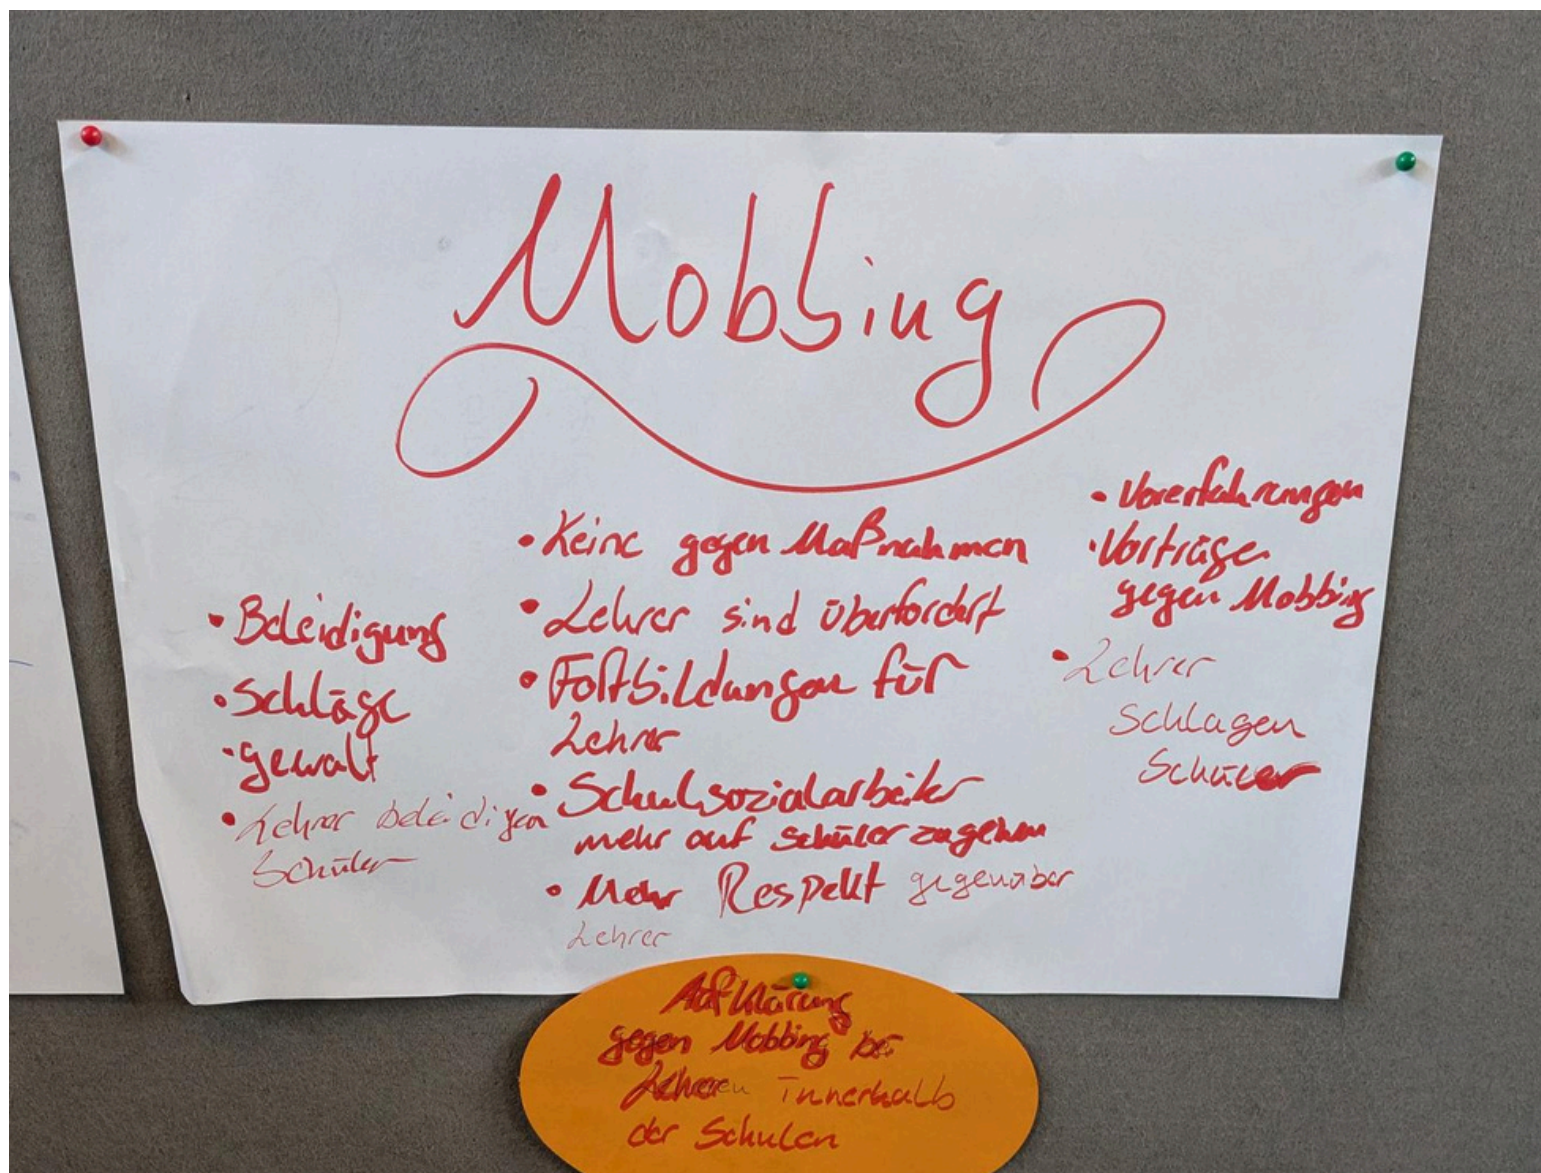 Mobbing
• Beleidigung
• Schläge
• gewalt
• Lehrer beleidigen
Schüler
• Keine gegen Maßnahmen
• Lehrer sind überfordert
• Fortbildungen für
Lehrer
• Schulsozialarbeiter
mehr auf Schüler zugehen
• Mehr Respekt gegenüber
Lehrer
• Vorerfahrungen
• Vorträge
gegen Mobbing
• Lehrer
Schlagen
Schüler
Aufklärung
gegen Mobbing bei
Lehreren innerhalb
der Schulen